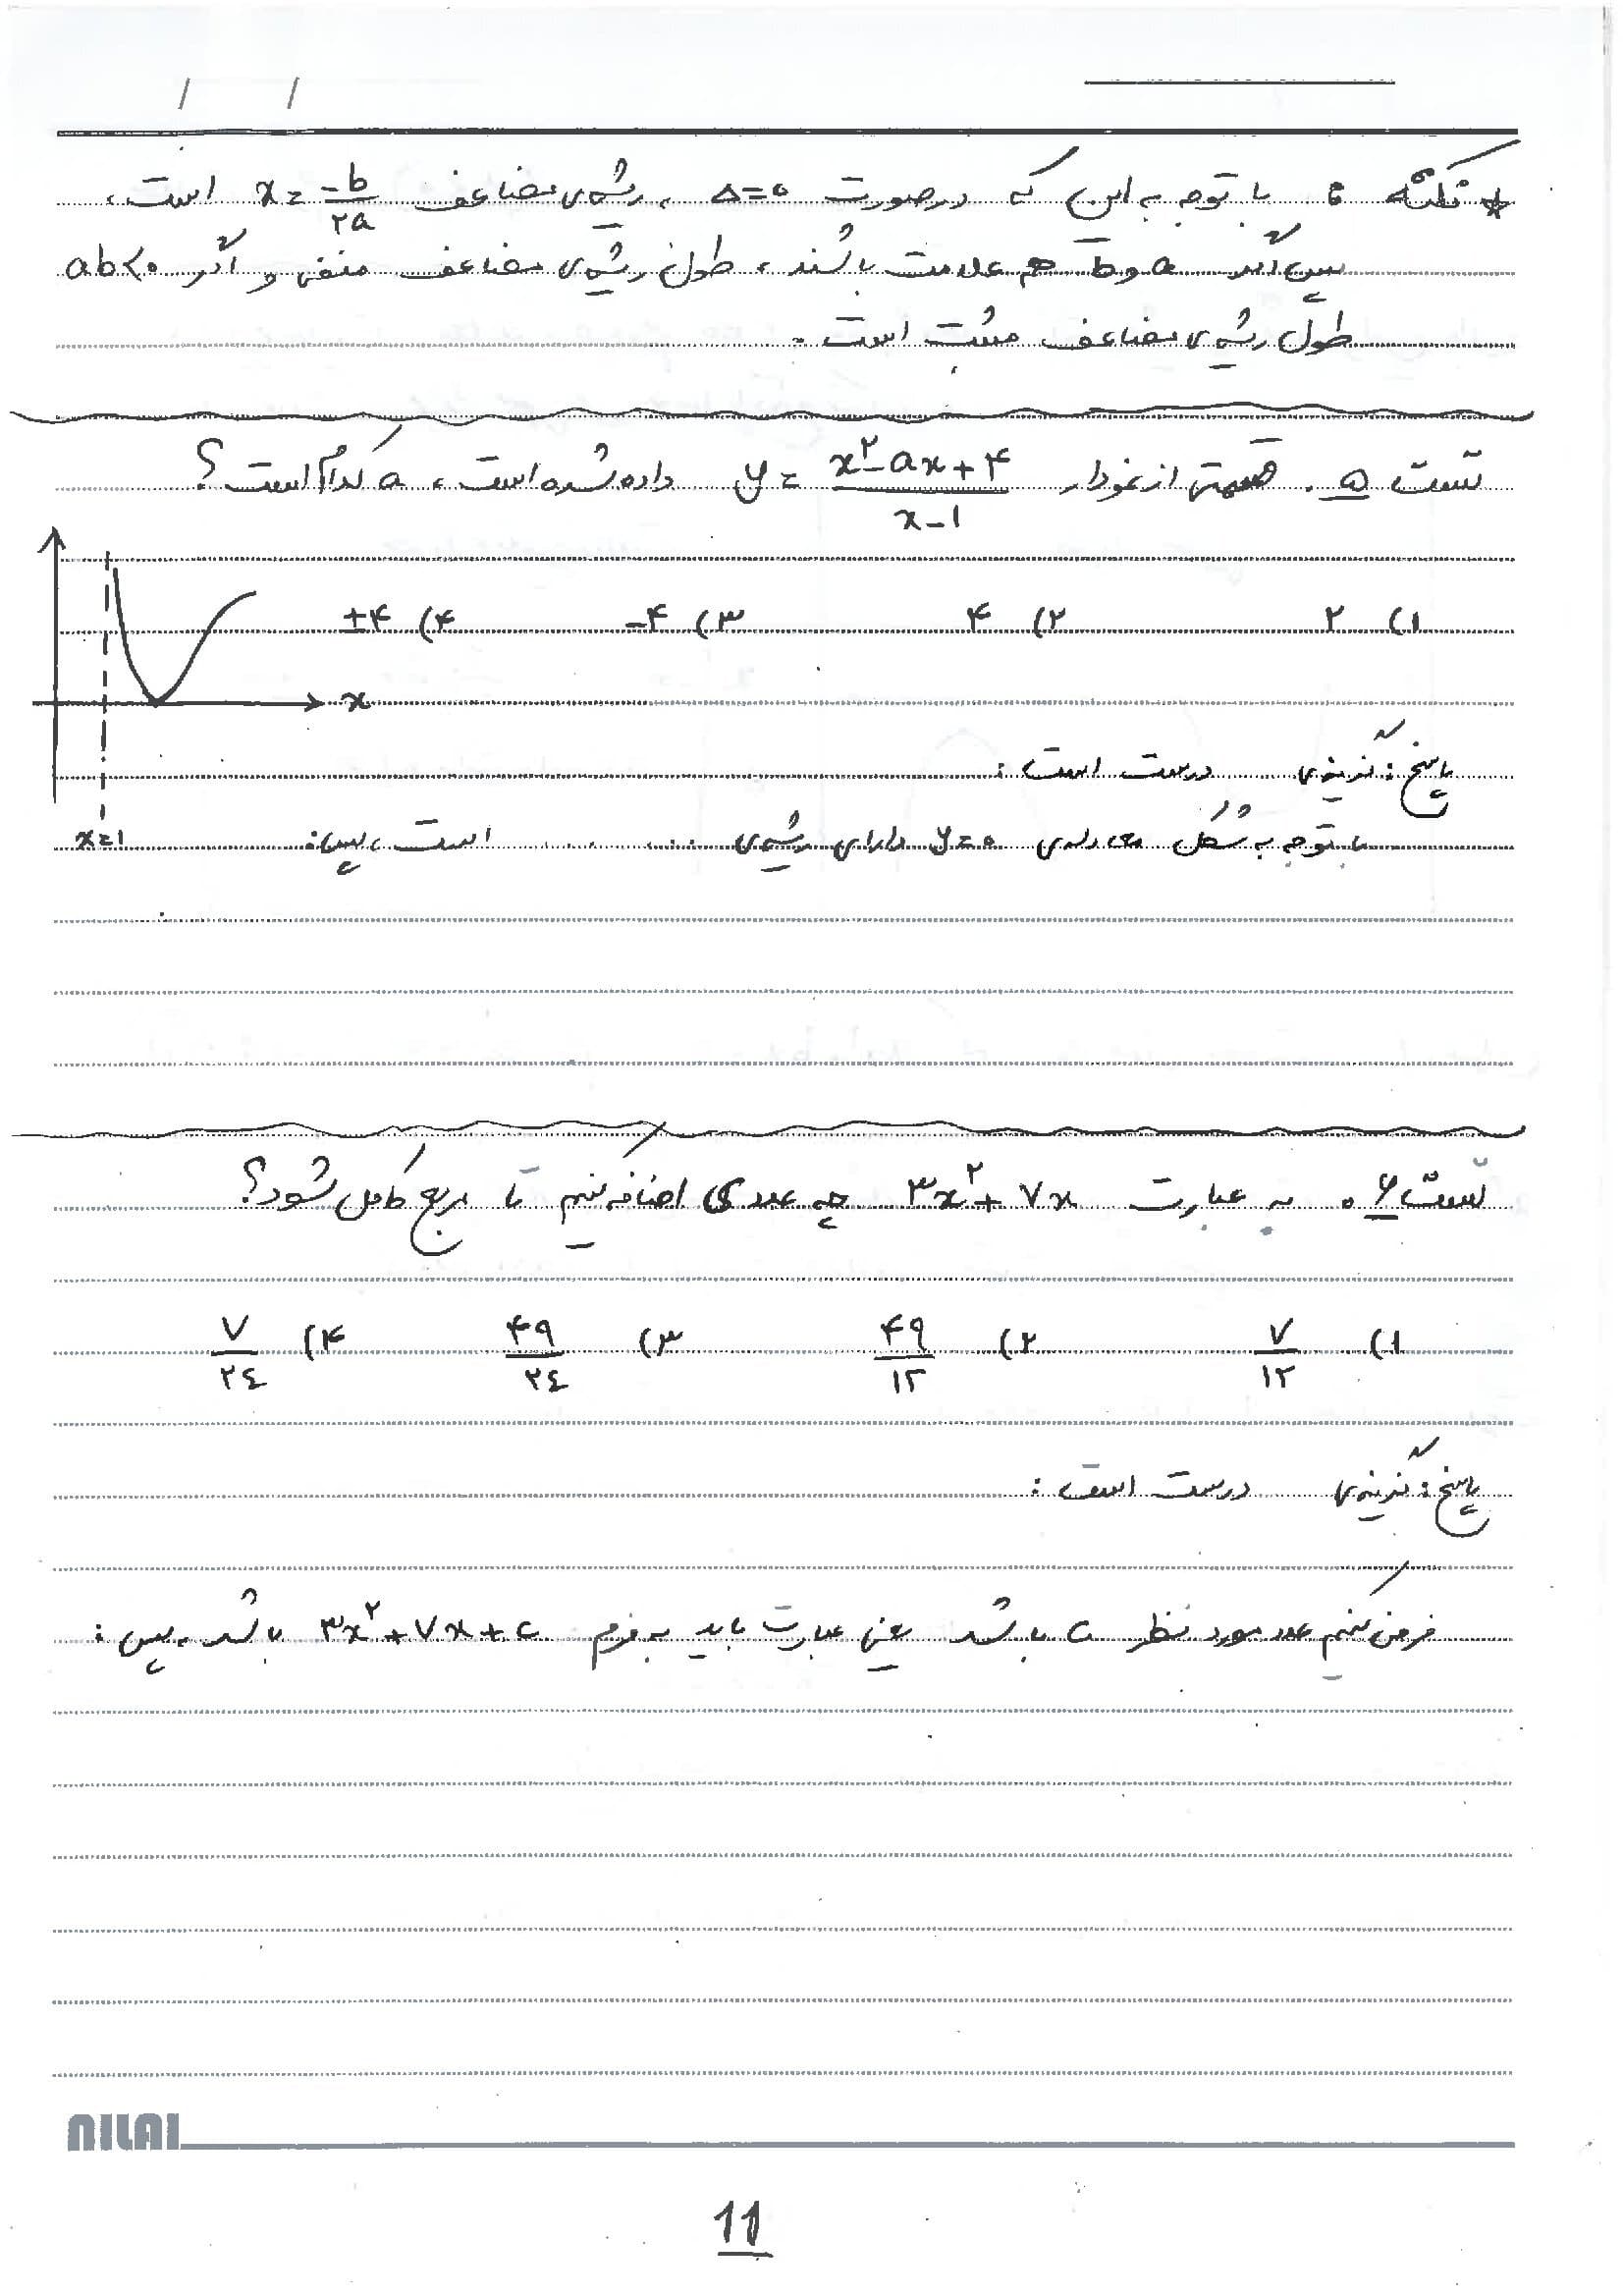 * نکته: با توجه به این که در صورت Δ=۰، ریشه‌ی مضاعف x = -b/۲a است،
پس اگر a و b هم علامت باشند، طول ریشه‌ی مضاعف منفی و اگر ab<۰
طول ریشه‌ی مضاعف مثبت است.
تست ۵. قسمتی از نمودار y = (x²-ax+۴)/(x-1) داده شده است، a کدام است؟
۱) ۲ ۲) ۴ ۳) -۴ ۴) ±۴
x
پاسخ: گزینه‌ی درست است:
x=1
با توجه به شکل معادله‌ی y=۰ دارای ریشه‌ی ..... است، پس:
تست ۶. به عبارت ۳x²+۷x چه عددی اضافه کنیم تا مربع کامل شود؟
۱) ۷/۱۲ ۲) ۴۹/۱۲ ۳) ۴۹/۲٤ ۴) ۷/۲٤
پاسخ: گزینه‌ی درست است:
فرض کنیم عدد مورد نظر c باشد یعنی عبارت باید به فرم ۳x²+۷x+c باشد، پس:
NILAI
11